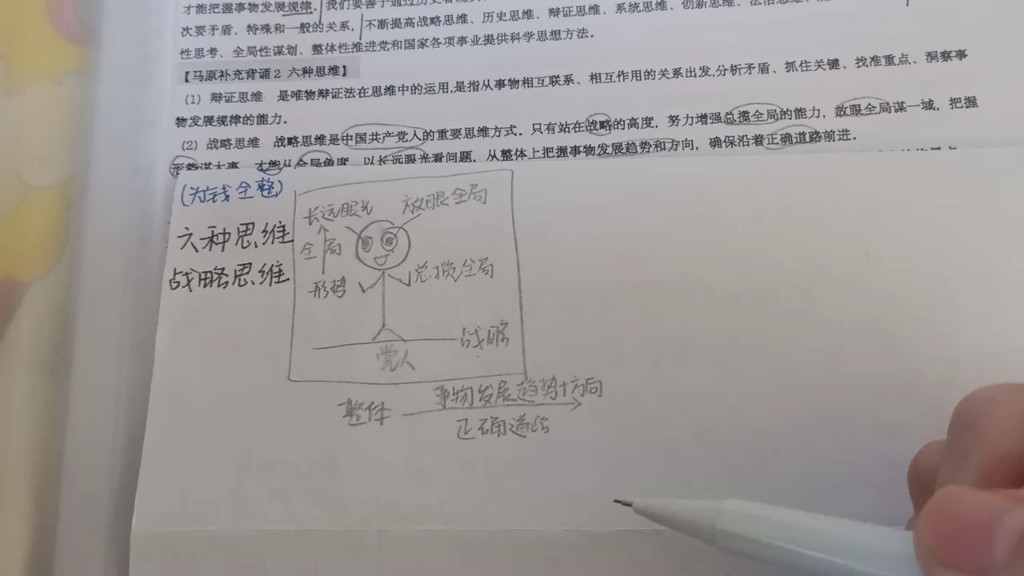 才能把握事物发展规律，我们要善于通过历史看
次要矛盾、特殊和一般的关系，不断提高战略思维、历史思维、辩证思维、系统思维、创新思维、法治思维、
性思考、全局性谋划、整体性推进党和国家各项事业提供科学思想方法。
【马原补充背诵2 六种思维】
(1) 辩证思维 是唯物辩证法在思维中的运用,是指从事物相互联系、相互作用的关系出发,分析矛盾、抓住关键、找准重点、洞察事
物发展规律的能力。
(2) 战略思维 战略思维是中国共产党人的重要思维方式。只有站在战略的高度，努力增强总揽全局的能力，放眼全局谋一域，把握
形势谋大事，才能从全局角度、以长远眼光看问题，从整体上把握事物发展趋势和方向，确保沿着正确道路前进。
六种思维
战略思维
长远眼光 放眼全局
全局
形势 总揽全局
战略
党人
整体 事物发展趋势+方向
正确道路